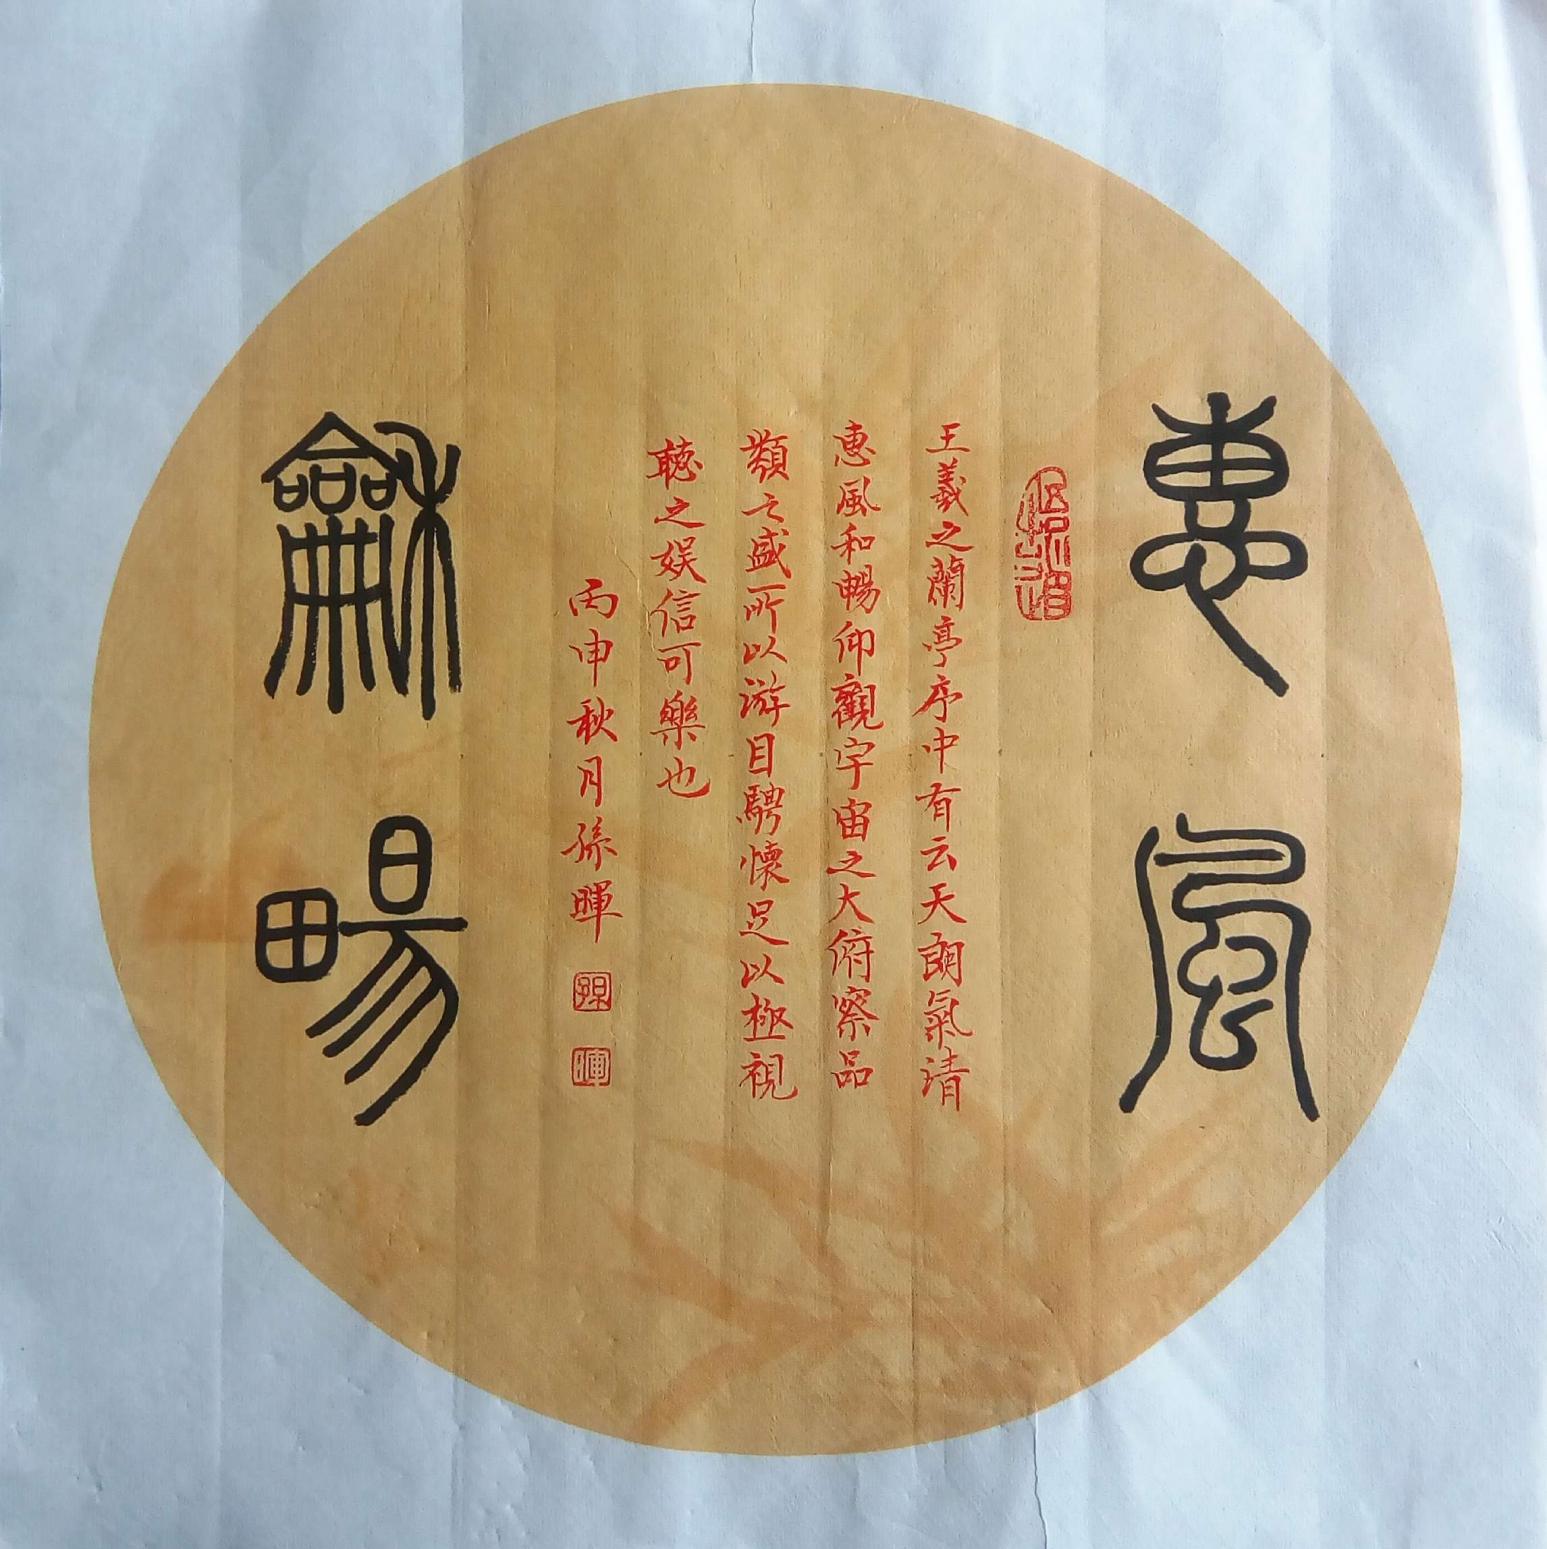 惠風
龢暘
王羲之蘭亭序中有云天朗氣清
惠風和暢仰觀宇宙之大俯察品
類之盛所以游目騁懷足以極視
聽之娱信可樂也
丙申秋月孫暉
孫
暉